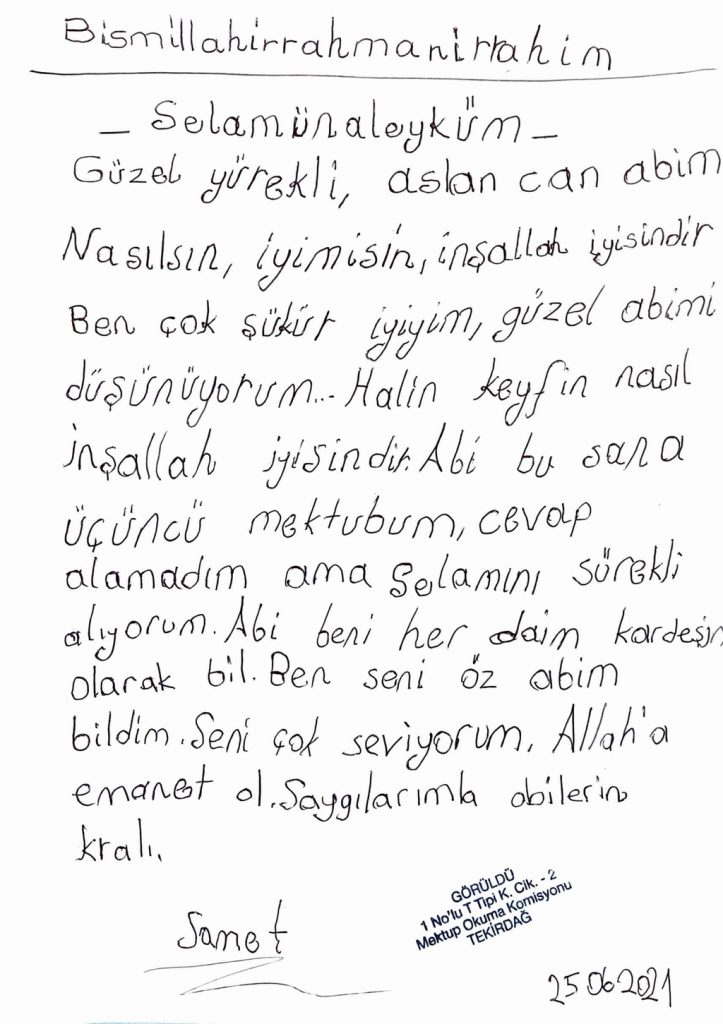 Bismillahirrahmanirrahim
- Selamünaleyküm -
Güzel yürekli, aslan can abim
Nasılsın, iyimisin, inşallah iyisindir
Ben çok şükür iyiyim, güzel abimi
düşünüyorum... Halin keyfin nasıl
inşallah iyisindir. Abi bu sana
üçüncü mektubum, cevap
alamadım ama Selamını sürekli
alıyorum. Abi beni her daim kardeşin
olarak bil. Ben seni öz abim
bildim. Seni çok seviyorum. Allah'a
emanet ol. Saygılarımla abilerin
kralı.
Samet
GÖRÜLDÜ
1 No'lu T Tipi K. Cik. - 2
Mektup Okuma Komisyonu
TEKİRDAĞ
25 06 2021